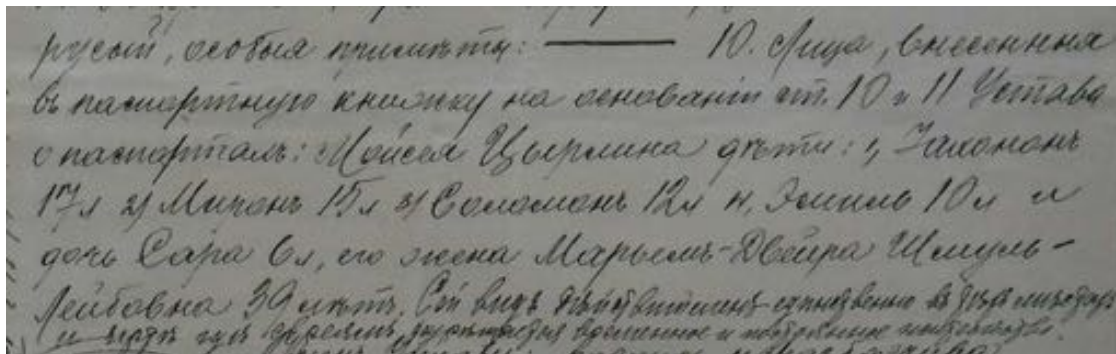 русый, особыя примѣты: —— 10. Лица, внесенныя
въ паспортную книжку на основаніи ст. 10 и 11 Устава
о паспортахъ: Мойсея Цырлина дѣти: 1, Захононъ
17л 2) Миронъ 15л 3) Соломонъ 12л 4, Эмиль 10л и
дочь Сара 6л, его жена Марьемъ-Двейра Шмуль-
Лейбовна 39 лѣтъ. Сей видъ дѣйствителенъ единственно въ тѣхъ мѣстахъ
и гдѣ евреямъ временное и постоянное жительство.